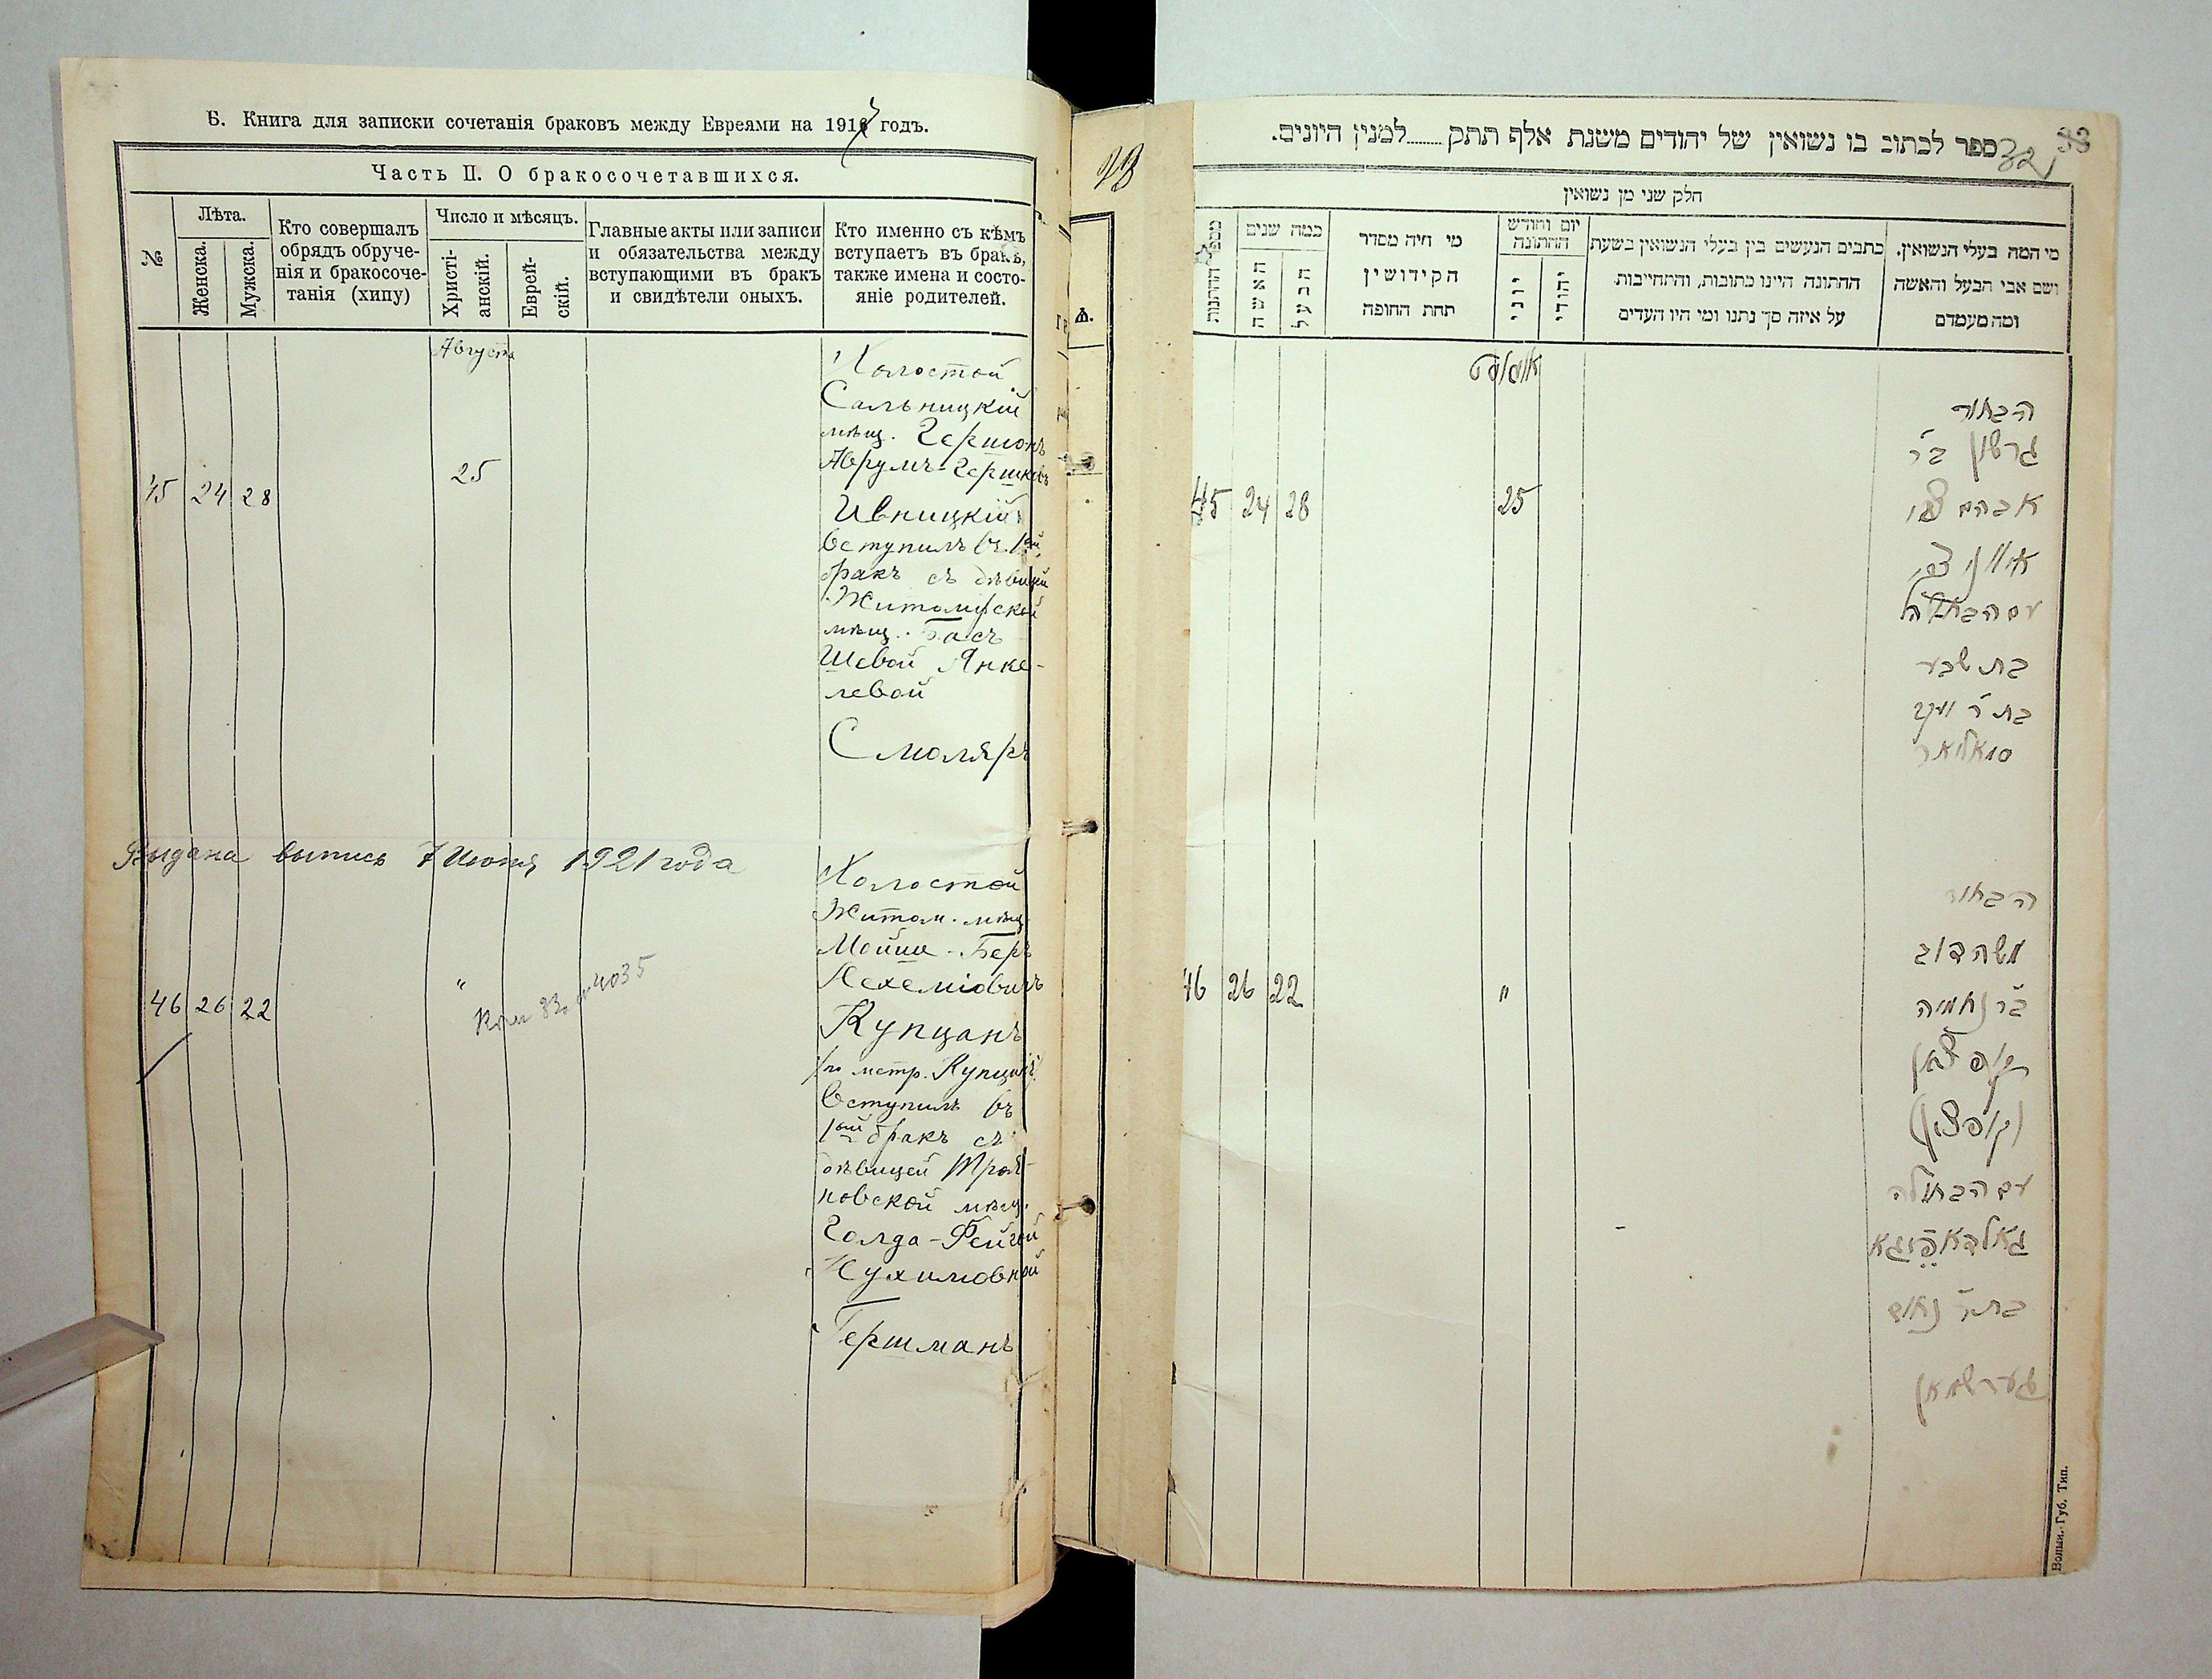 Б. Книга для записки сочетанія браковъ между Евреями на 1917 годъ.
Часть II. О бракосочетавшихся.
№
Лѣта.
Женска.
Мужска.
Кто совершалъ
обрядъ обруче-
нія и бракосоче-
танія (хипу)
Число и мѣсяцъ.
Христі-
анскій.
Еврей-
скій.
Главные акты или записи
и обязательства между
вступающими въ бракъ
и свидѣтели оныхъ.
Кто именно съ кѣмъ
вступаетъ въ бракъ,
также имена и состо-
яніе родителей.
Августа
45 24 28 25
Холостой
Сальницкій
мѣщ. Гершонъ
Аврумъ-Гершковъ
Ивницкій
вступилъ въ 1ый
бракъ съ дѣвицей
Житомірской
мѣщ. Бася
Шевой Янке-
левой
Смоляръ
Выдана выпись 7 Июня 1921 года
46 26 22 "
4035
Холостой
Житом. мѣщ.
Мойше-Беръ
Нехеміовичъ
Купцанъ
по метр. Купцинъ
вступилъ въ
1ый бракъ съ
дѣвицей Троя-
новской мѣщ.
Голда-Фейгой
Нухимовной
Гершманъ
ѣ.
ספר לכתוב בו נשואין של יהודים משנת אלף תתק........למנין היונים.
32
33
חלק שני מן נשואין
מספר החתונות
כמה שנים
האשה
הבעל
מי היה מסדר
הקידושין
תחת החופה
יום וחודש
החתונה
יוני
יהודי
כתבים הנעשים בין בעלי הנשואין בשעת
החתונה היינו כתובות, והתחייבות
על איזה סך נתנו ומי היו העדים
מי המה בעלי הנשואין.
ושם אבי הבעל והאשה
ומה מעמדם
אווגוסט
45 24 28 25
הבחור
גרשון ב״ר
אברהם צבי
עם הבתולה
בת שבע
בת ר׳ יעקב
סמאליאר
46 26 22 "
הבחור
משה דוב
ב״ר נחמיה
קופצאן
(קופצין)
עם הבתולה
גאלדא פייגא
בת ר׳ נחום
גערשמאן
Волын. Губ. Тип.